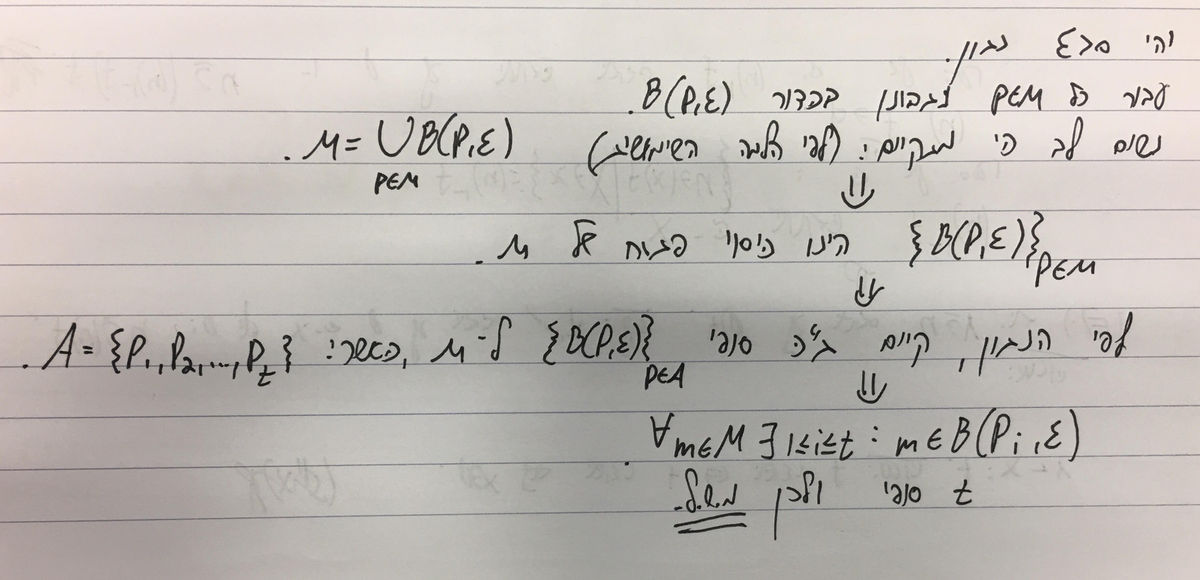 יהי ε>0 נתון.
עבור כל p∈M נתבונן בכדור B(p,ε).
נשים לב כי מתקיים: (לפי הלמה השימושית) M = ⋃_{p∈M} B(p,ε).
⇓
{B(p,ε)}_{p∈M} הינו כיסוי פתוח של M.
⇓
לפי הנתון, קיים ת״כ סופי {B(p,ε)}_{p∈A} ל-M, כאשר: A = {p₁,p₂,...,p_t}.
⇓
∀m∈M ∃ 1≤i≤t : m∈B(p_i,ε).
t סופי ולכן מ.ש.ל.